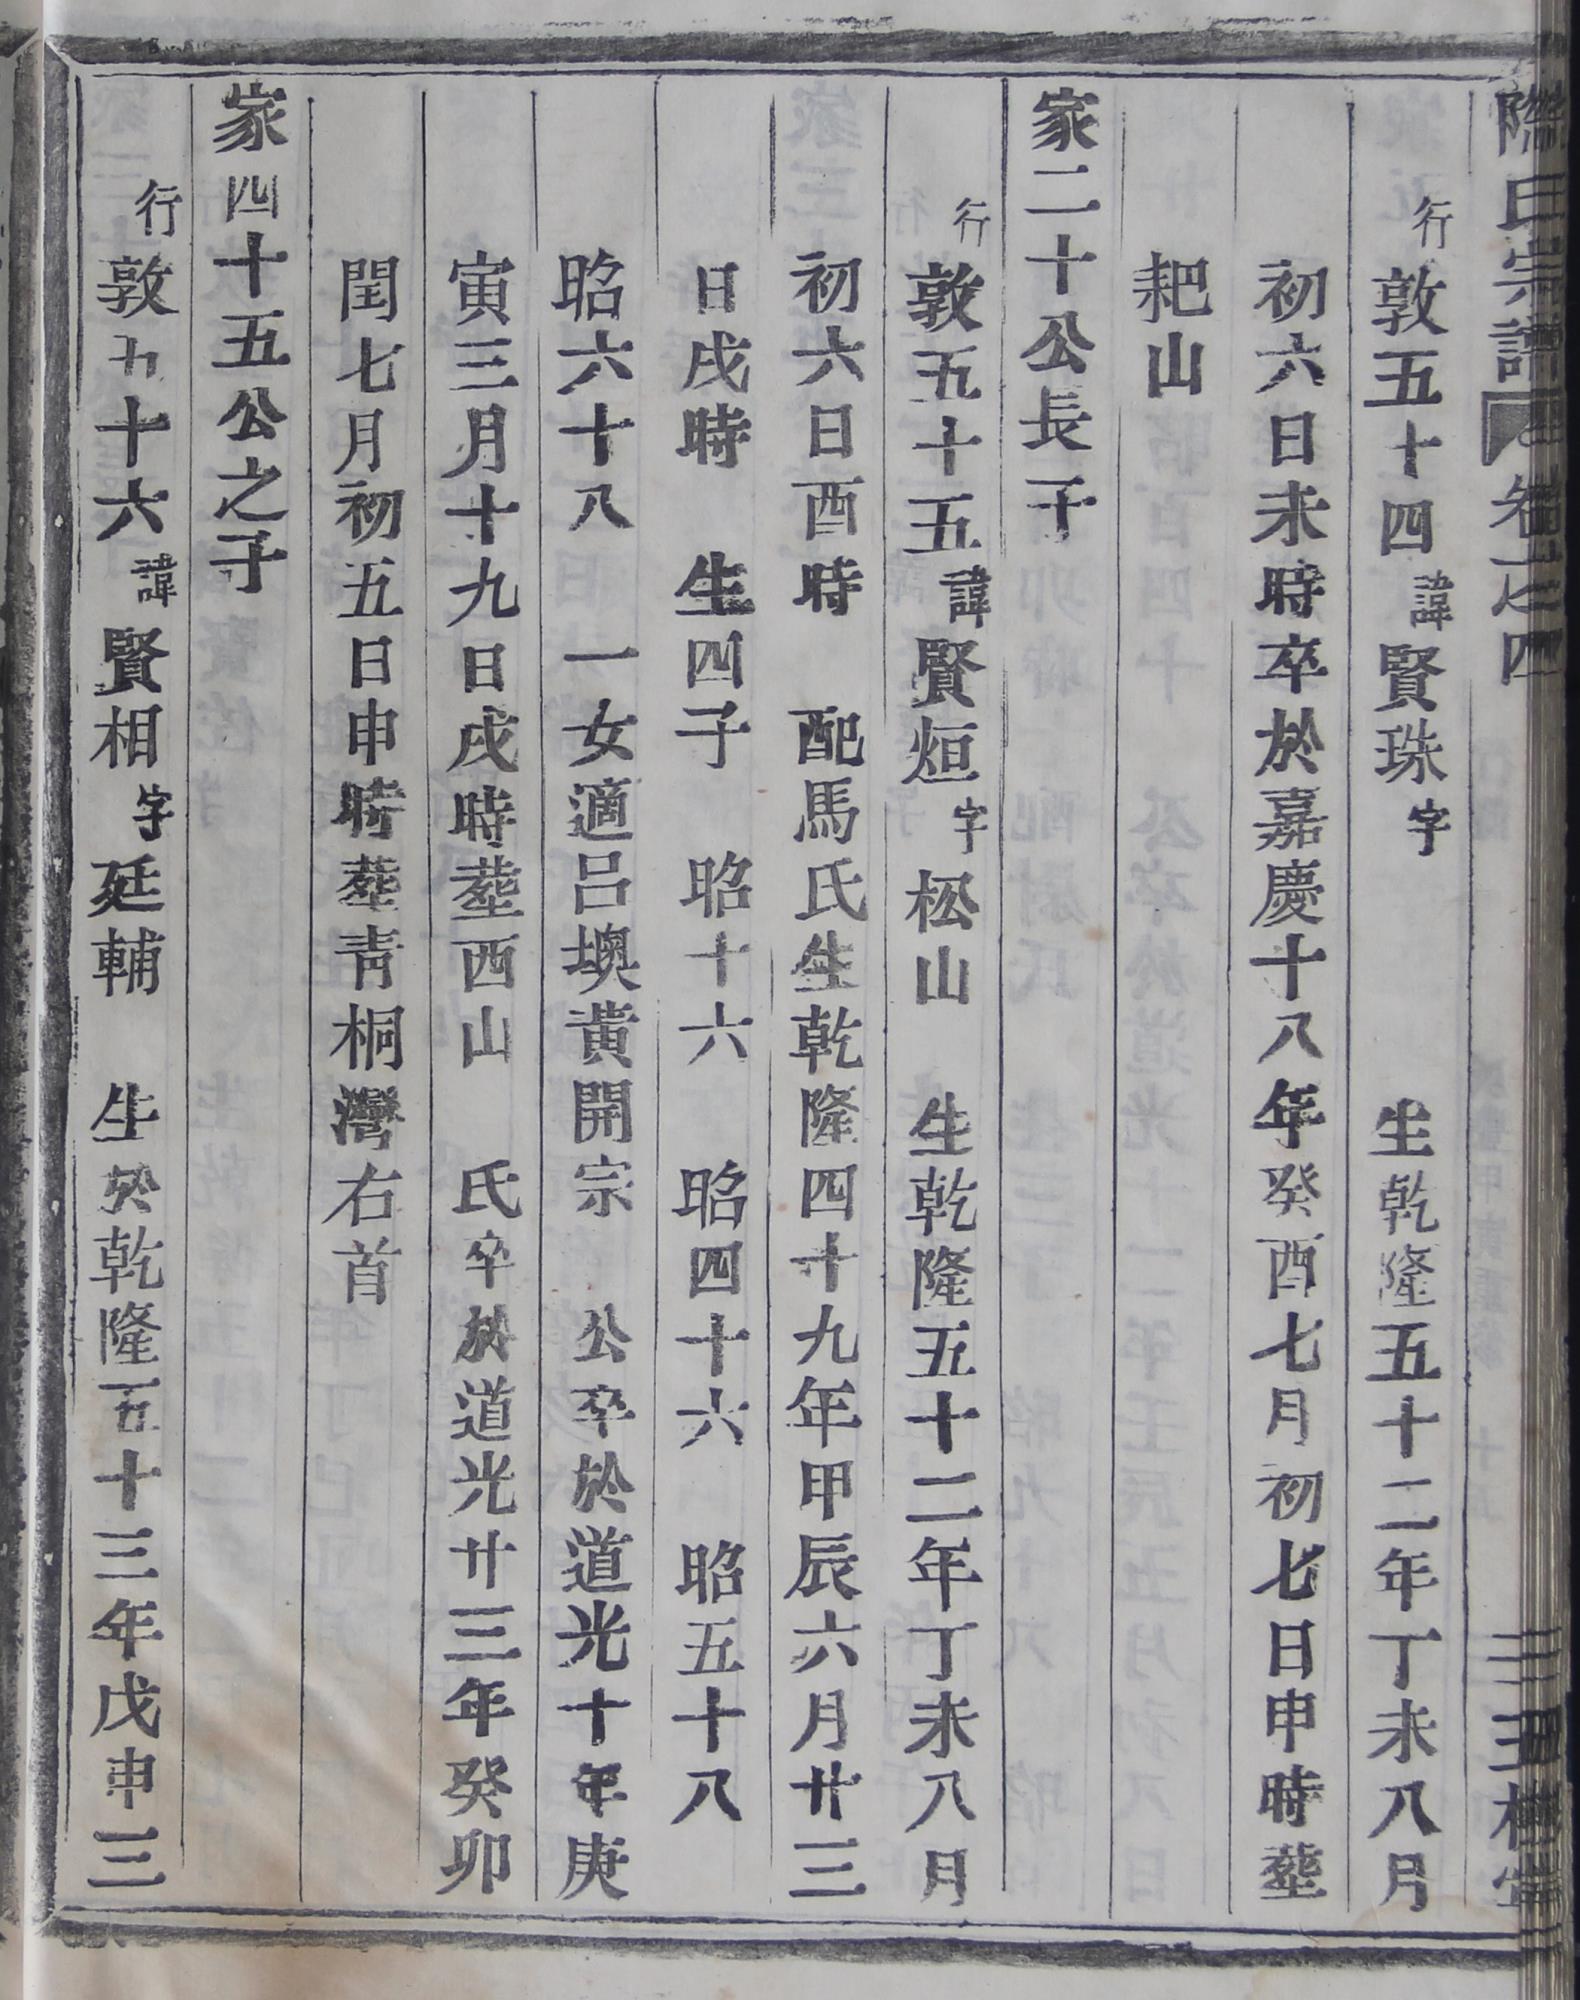 氏宗譜 卷之四 三 三槐堂
行敦五十四諱賢珠字 生乾隆五十二年丁未八月
初六日未時卒於嘉慶十八年癸酉七月初七日申時塟
耙山
家二十公長子
行敦五十五諱賢烜字松山 生乾隆五十二年丁未八月
初六日酉時 配馬氏生乾隆四十九年甲辰六月廿三
日戌時 生四子 昭十六 昭四十六 昭五十八
昭六十八 一女適呂墺黃開宗 公卒於道光十年庚
寅三月十九日戌時塟西山 氏卒於道光廿三年癸卯
閏七月初五日申時塟靑桐灣右首
家四十五公之子
行敦五十六諱賢相字延輔 生於乾隆五十三年戊申三